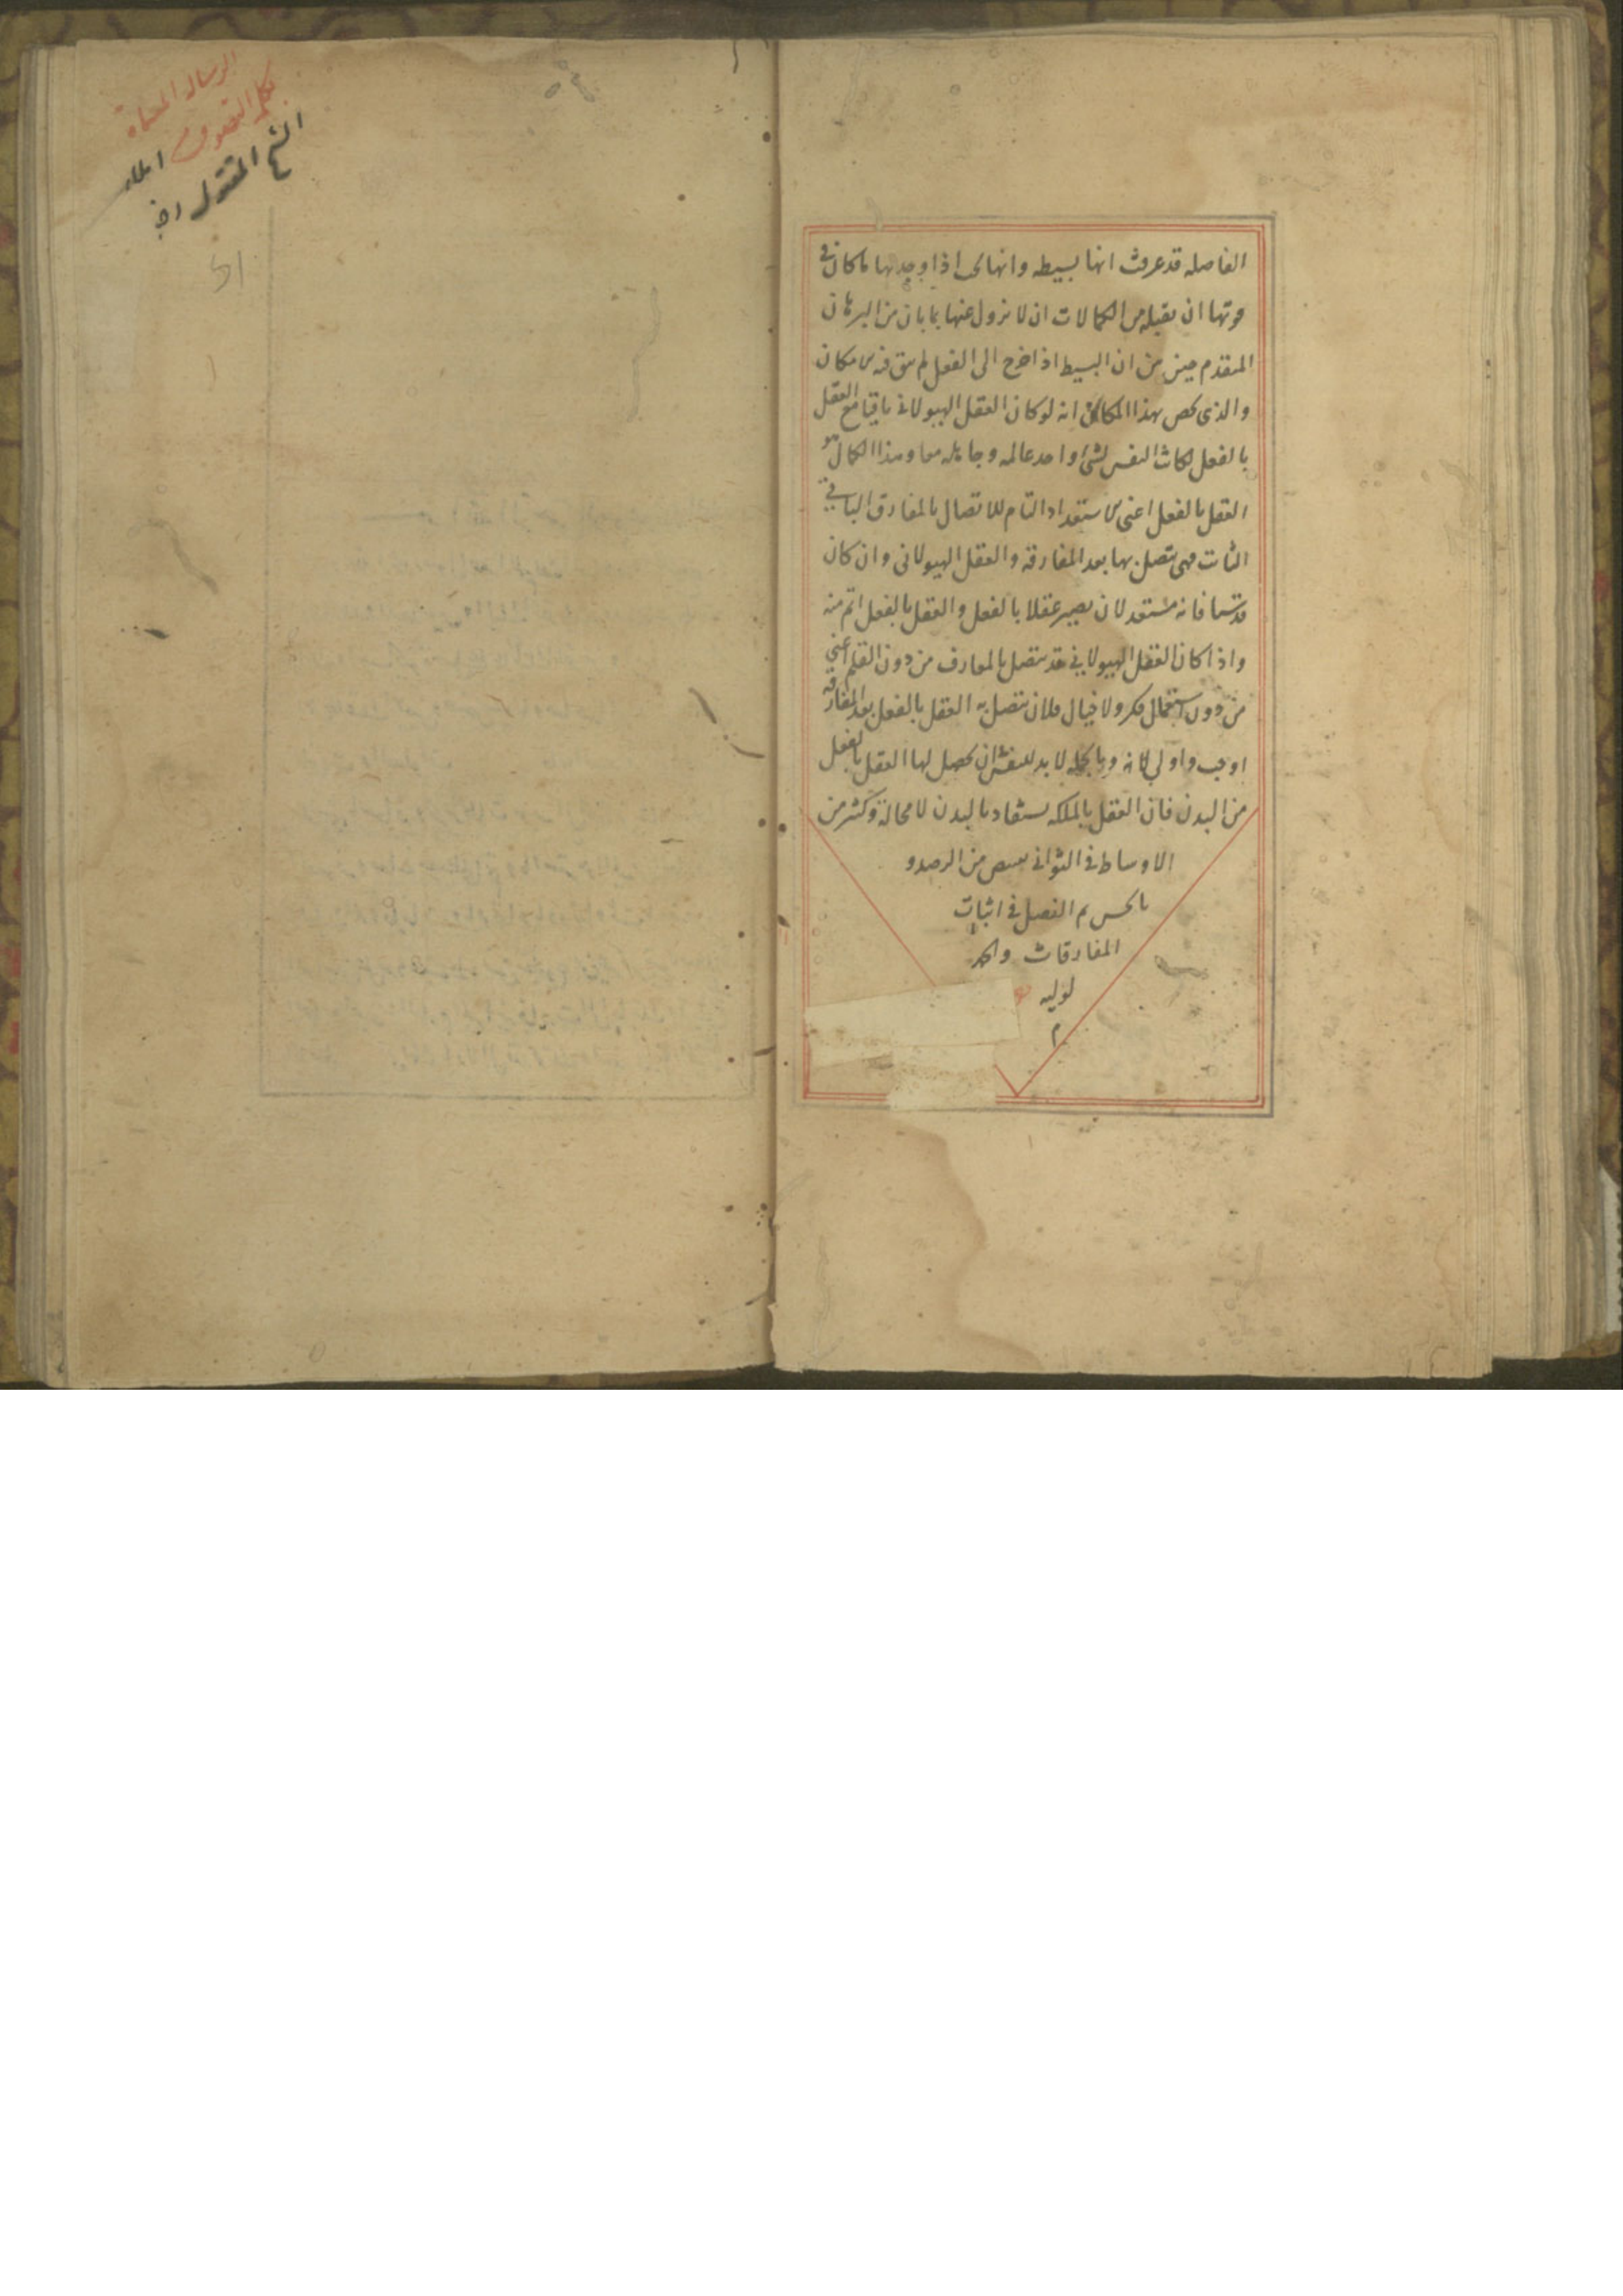 الفاصله قد عرفت انها بسيطه وانها يجب اذا وجد لها ما كان في
قوتها ان يقبله من الكمالات ان لا يزول عنها بما بان من البرهان
المتقدم من ان البسيط اذا خرج الى الفعل لم يبق فيه مكان
والذي يخص بهذا المكان انه لو كان العقل الهيولاني باقيا مع العقل
بالفعل لكانت النفس لشئ واحد عالمه وجاهله معا وهذا الكمال هو
العقل بالفعل اعني الاستعداد التام للاتصال بالمفارق الباقي
الثابت فهي تتصل بها بعد المفارقه والعقل الهيولاني وان كان
قدسيا فانه مستعد لان يصير عقلا بالفعل والعقل بالفعل اتم منه
واذا كان العقل الهيولاني قد يتصل بالمفارق من دون التعلم اعني
من دون استعمال فكر ولا خيال فلان يتصل به العقل بالفعل بعد المفارقه
اوجب واولى لانه وبالجمله لا بد للنفس ان يحصل لها العقل بالفعل
من البدن فان العقل بالملكه يستفاد بالبدن لا محالة وكثير من
الاوساط في الثواني من الرصد و
بالحس تم الفصل في اثبات
المفارقات والحمد
لوليه
م
الرساله المسماة
بكلمة التصوف املاء
الشيخ المقتول رض